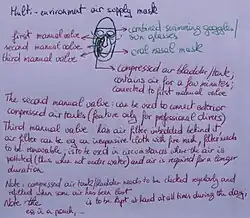 Multi-environment air supply mask
first manual valve
second manual valve
third manual valve
combined swimming goggles/
sun glasses
oral nasal mask
compressed air bladder/tank;
contains air for a few minutes;
connected to first manual valve
The second manual valve: can be used to connect exterior
compressed air tanks (feature only for professional divers)
Third manual valve has air filter imbedded behind it
air filter can be eg an inexpensive cloth with fine mesh, filter needs
to be removable; is to be used in circumstances when the air is
polluted (thus when not under water) and air is required for a longer
duration.
Note: compressed air tank/bladder needs to be checked regularly and
refilled when some air has been lost
Note: the is to be kept at hand at all times during the day,
eg in a pouch, ...